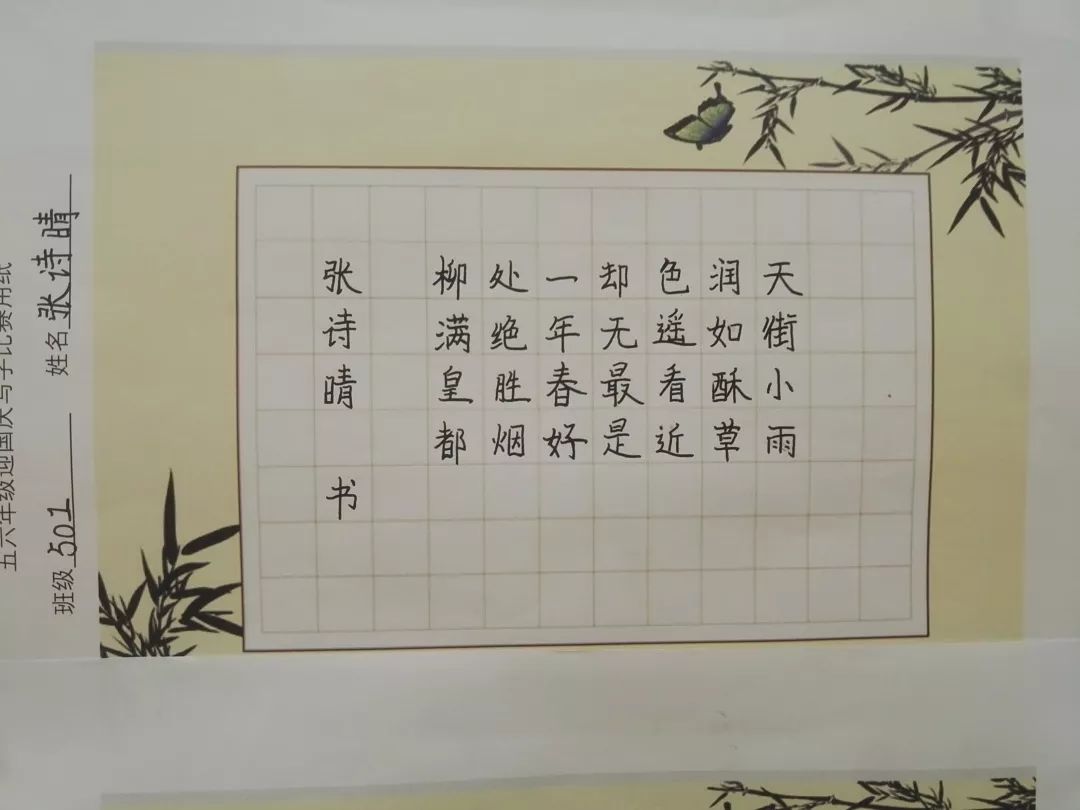 天街小雨
润如酥草
色遥看近
却无最是
一年春好
处绝胜烟
柳满皇都
张诗晴 书
五六年级迎国庆写字比赛用纸
班级 501 姓名 张诗晴